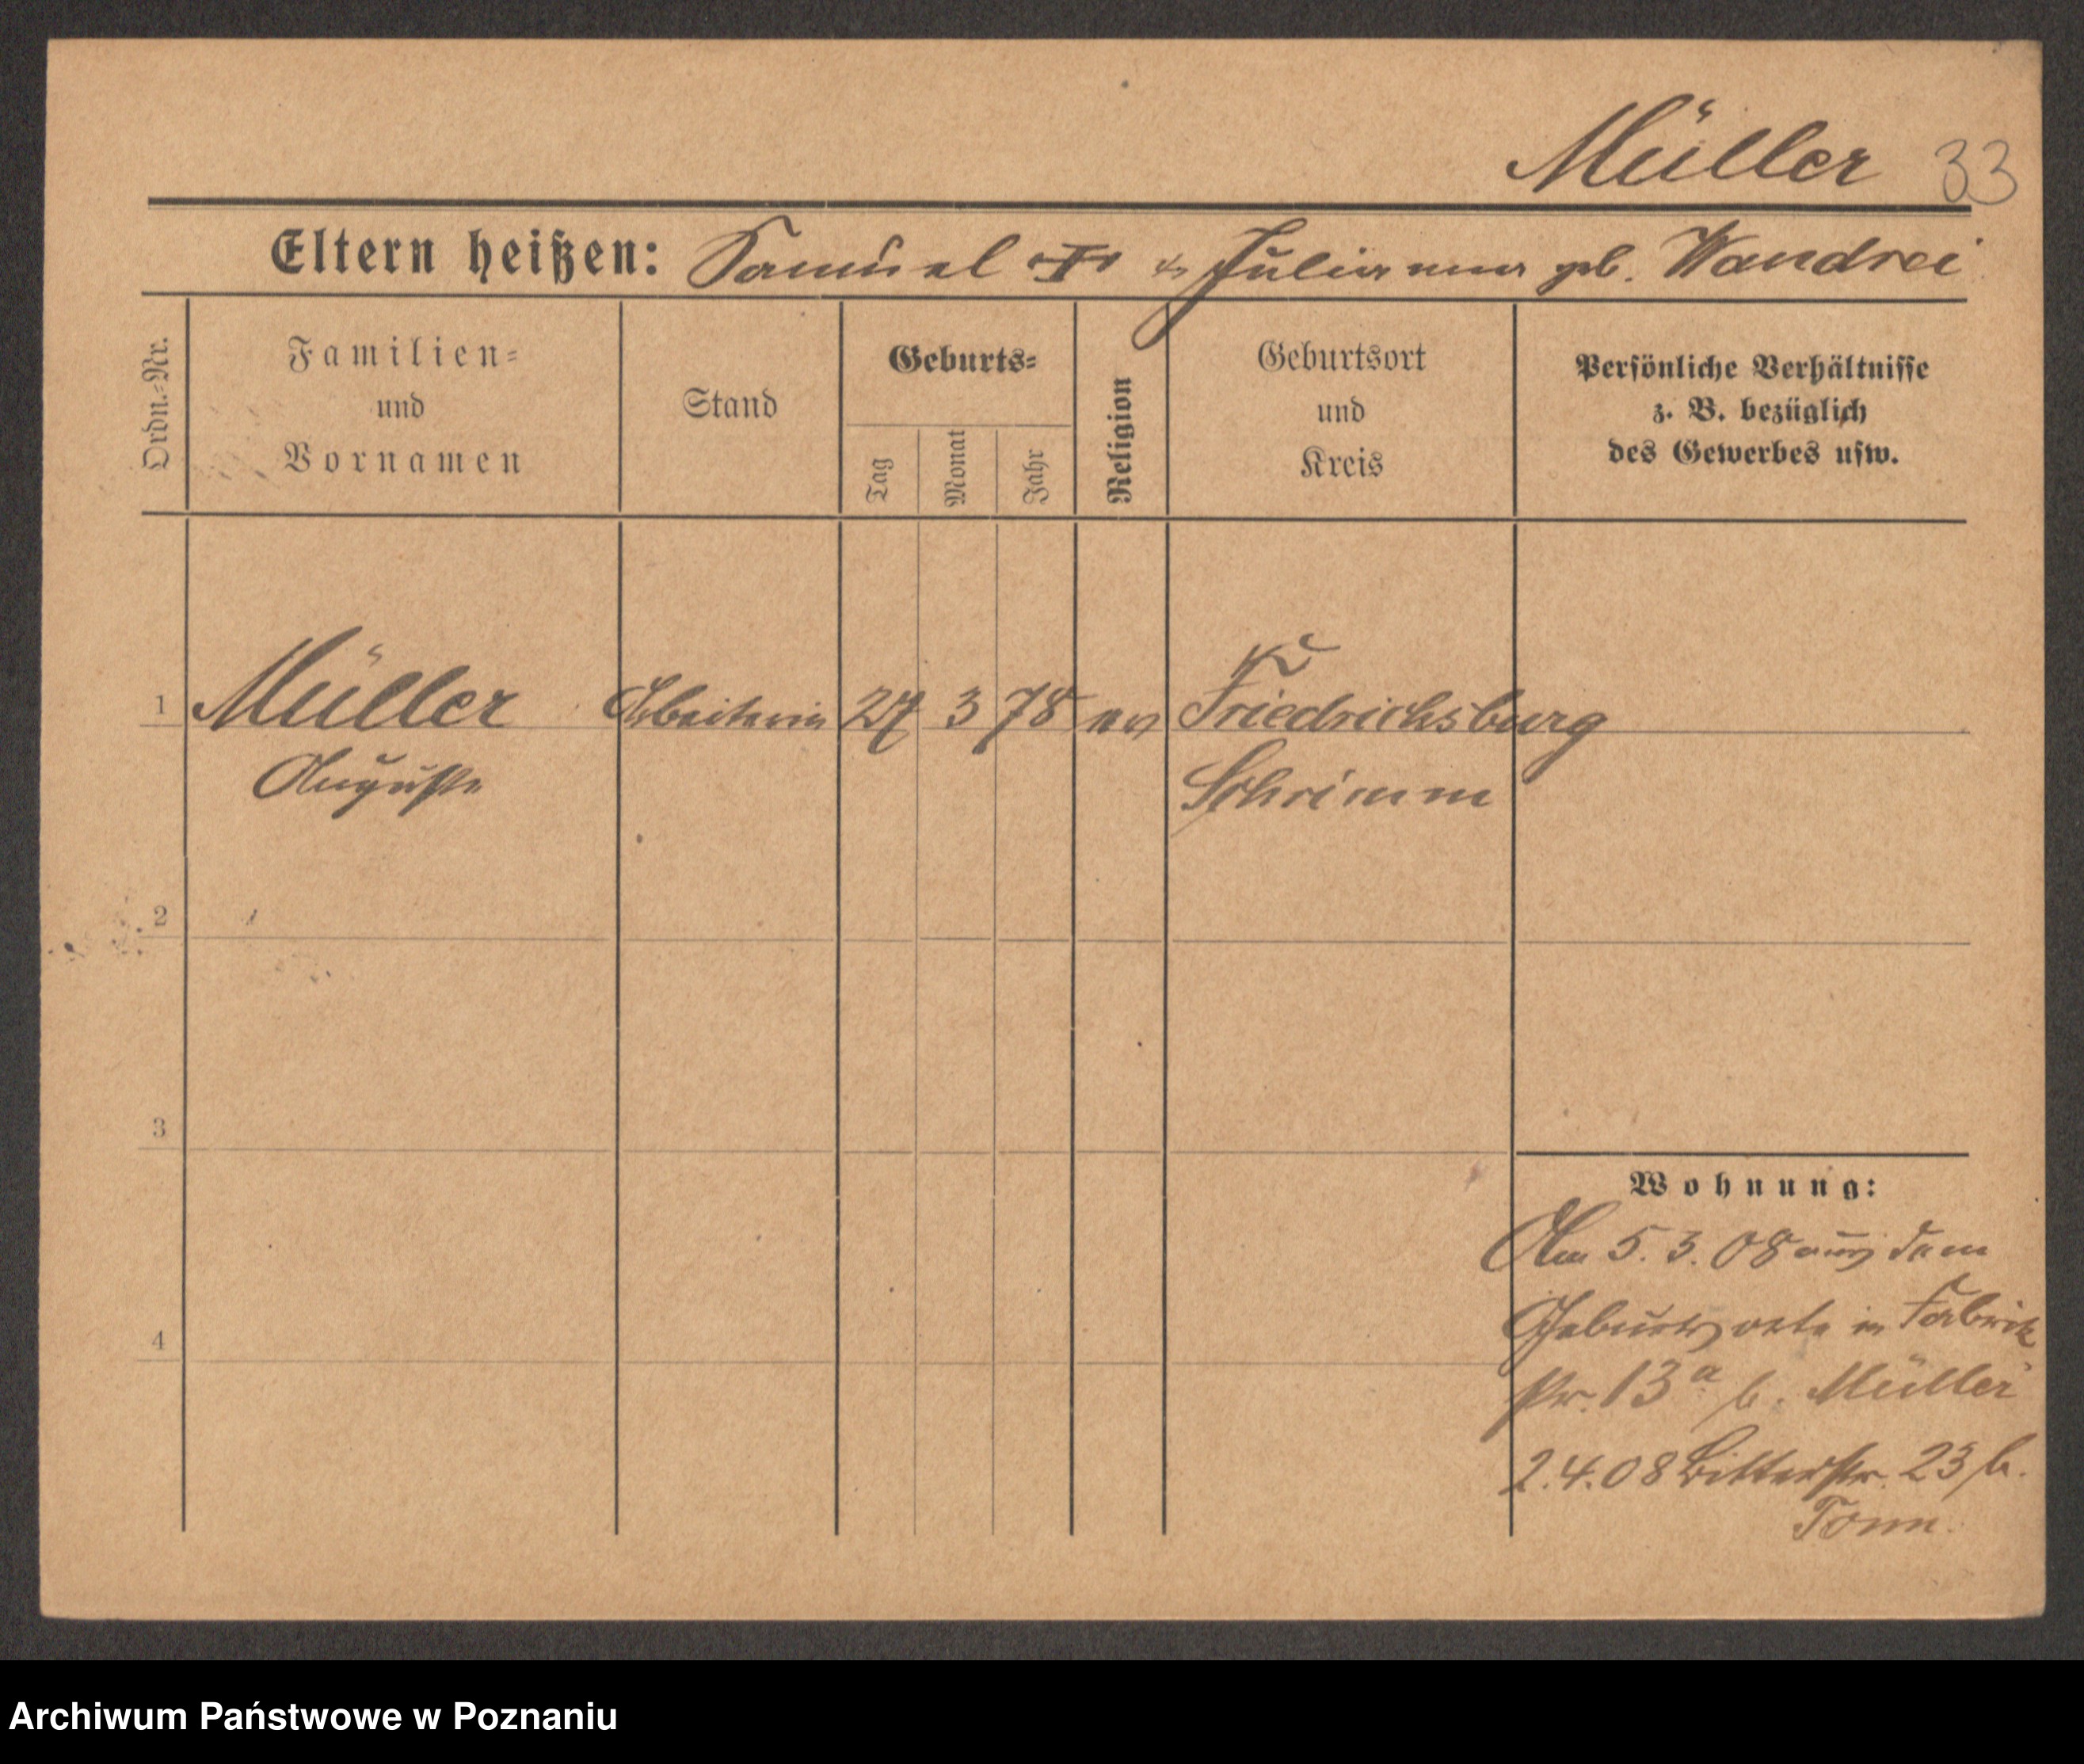 Müller 33
Eltern heißen: Samuel † & Julianna geb. Wandrei
Ordn.-Nr.
Familien-
und
Vornamen
Stand
Geburts-
Tag
Monat
Jahr
Religion
Geburtsort
und
Kreis
Persönliche Verhältnisse
z. B. bezüglich
des Gewerbes usw.
1 Müller Arbeiterin 27 3 78 ev Friedrichsburg
Auguste Schrimm
2
3
4
Wohnung:
Am 5. 3. 08 aus dem
Geburtsorte in Fabrik
str. 13a b. Müller
2.4.08 Bitterstr. 23 b.
Tonn.
Archiwum Państwowe w Poznaniu